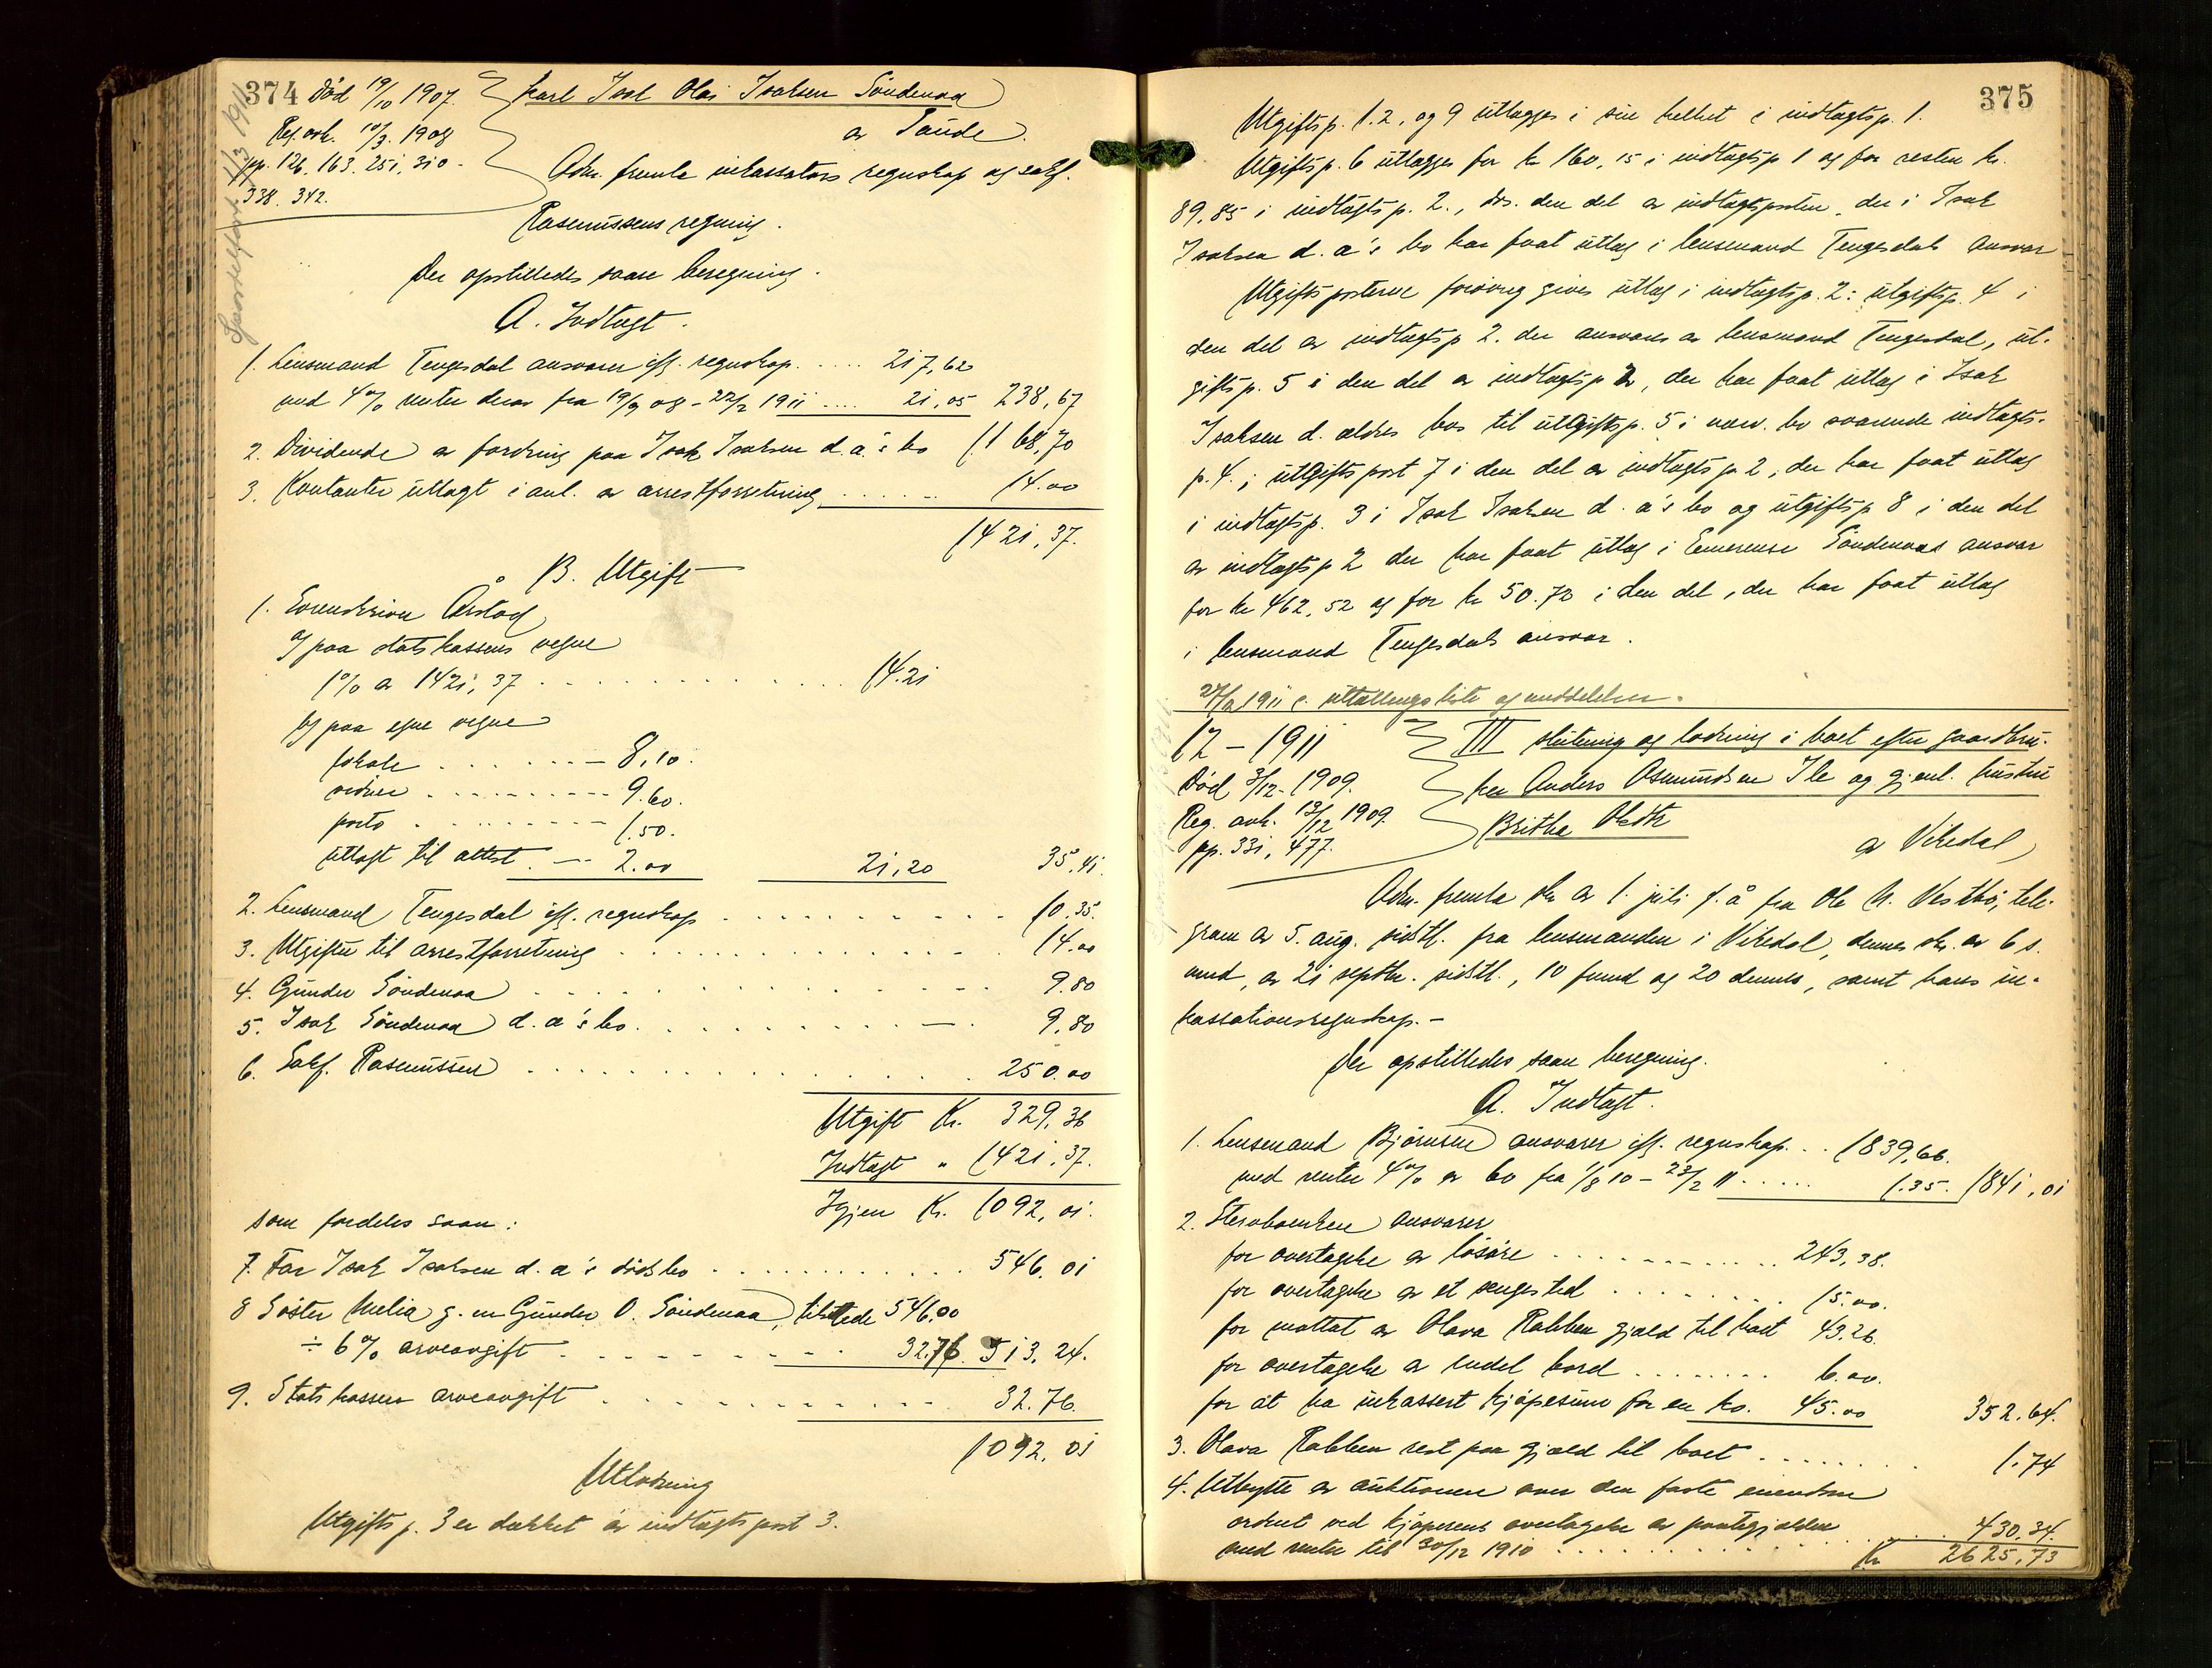 374
Død 19/10 1907.
Karl Isak Olai Isaksen Söndenaa
Reg. avh. 10/3. 1908
av Saude.
pp. 126. 163. 251. 310.
338. 342.
Adm. fremla inkassators regnskap og sakf.
Rasmussens regning.
Der opstilledes saan beregning.
A. Indtægt.
1. Lensmand Tengesdal ansvarer ifl. regnskap. .... 217,62
med 4% renter derav fra 19/9 08 - 22/2 1911 .... 21,05 238,67
2. Dividende av fordring paa Isak Isaksen d.æ's bo 1168,70
3. Kontanter utlagt i anl. av arrestforretning ...... 14.00
1421,37.
B. Utgift
1. Sorenskriver Årstad
a) paa statskassens vegne
1% av 1421,37 . . . . . . 14.21
b) paa egne vegne
lokale . . . . . 8,10.
vidner . . . . . 9.60.
porto . . . . . 1.50.
utlagt til attest . — 2.00 21,20 35,41.
2. Lensmand Tengesdal ifl. regnskap . . . . . 10,35.
3. Utgifter til arrestforretning . . . . . 14.00
4. Gunder Söndenaa . . . . . 9.80
5. Isak Söndenaa d.æ's bo. . . . . . 9,80
6. Sakf. Rasmussen . . . . . 250.00
Utgift Kr. 329,36
Indtægt " 1421,37.
Igjen Kr. 1092,01.
som fordeles saan:
7. Far Isak Isaksen d.æ's dödsbo . . . . . 546.01
8 Söster Melia g. m Gunder O. Söndenaa, tilstede 546.00
÷ 6% arveavgift . . . . . 32.76. 513,24.
9. Statskassen arveavgift . . . . . 32.76.
1092,01
Utlodning
Utgiftsp. 3 er dækket av indtægtspost 3.
375
Utgiftsp. 1.2, og 9 utlægges i sin helhet i indtægtsp. 1.
Utgiftsp. 6 utlægges for kr 160,15 i indtægtsp 1 og for resten kr.
89,85 i indtægtsp. 2., dvs. den del av indtægtsposten, der i Isak
Isaksen d.æ's bo har faat utlæg i lensmand Tengesdals ansvar
Utgiftsposterne forövrig gives utlæg i indtægtsp. 2: utgiftsp. 4 i
den del av indtægtsp 2. der ansvares av lensmand Tengesdal, ut-
giftsp. 5 i den del av indtægtsp 2, der har faat utlæg i Isak
Isaksen d. ældres bos til utgiftsp. 5 i nærv. bo svarende indtægts-
p. 4.; utgiftspost 7 i den del av indtægtsp 2, der har faat utlæg
i indtægtsp. 3 i Isak Isaksen d.æ's bo og utgiftsp 8 i den del
av indtægtsp 2 der har faat utlæg i Emerense Söndenaas ansvar
for kr 462,52 og for kr 50.72 i den del, der har faat utlæg
i lensmand Tengesdals ansvar.
27/2 1911 e. uttællingsliste og meddelelser.
12 - 1911
III slutning og lodning i boet efter gaardbru-
Död 3/12 - 1909.
ker Anders Osmundsen Ile og gjenl. hustru
Reg. anh. 13/12 1909.
Britha Olsdtr
pp. 331, 477.
av Vikedal
Adm. fremla skr av 1. juli f.å fra Ole N. Vestbö, tele-
gram av 5. aug. sidstl. fra lensmanden i Vikedal, dennes skr. av 6 s.
mnd, av 21 septbr. sidstl., 10 fernd og 20 dennes, samt hans in-
kassationsregnskap. -
Der opstilledes saan beregning.
A. Indtægt.
1. Lensmand Björnsen ansvarer ifl. regnskap. . . 1839,66.
med renter 4% av 60 fra 1/8 10 - 23/2 11 ..... 1.35. 1841,01
2. Stervboenken ansvarer
for overtagelse av lösöre . . . . . 243,38.
for overtagelse av et sengested . . . . . 15.00.
for mottat av Olava Rabben gjæld til boet 43.26.
for overtagelse av endel bord . . . . . 6.00.
for at ha inkassert kjöpesum for en ko. 45.00 352.64.
3. Olava Rabben rest paa gjæld til boet . . . . . 1.74
4. Utbytte av auktionen over den faste eiendom
ordnet ved kjöperens overtagelse av pantegjælden
med renter til 30/12 1910 . . . . . 430.34.
Kr 2625,73